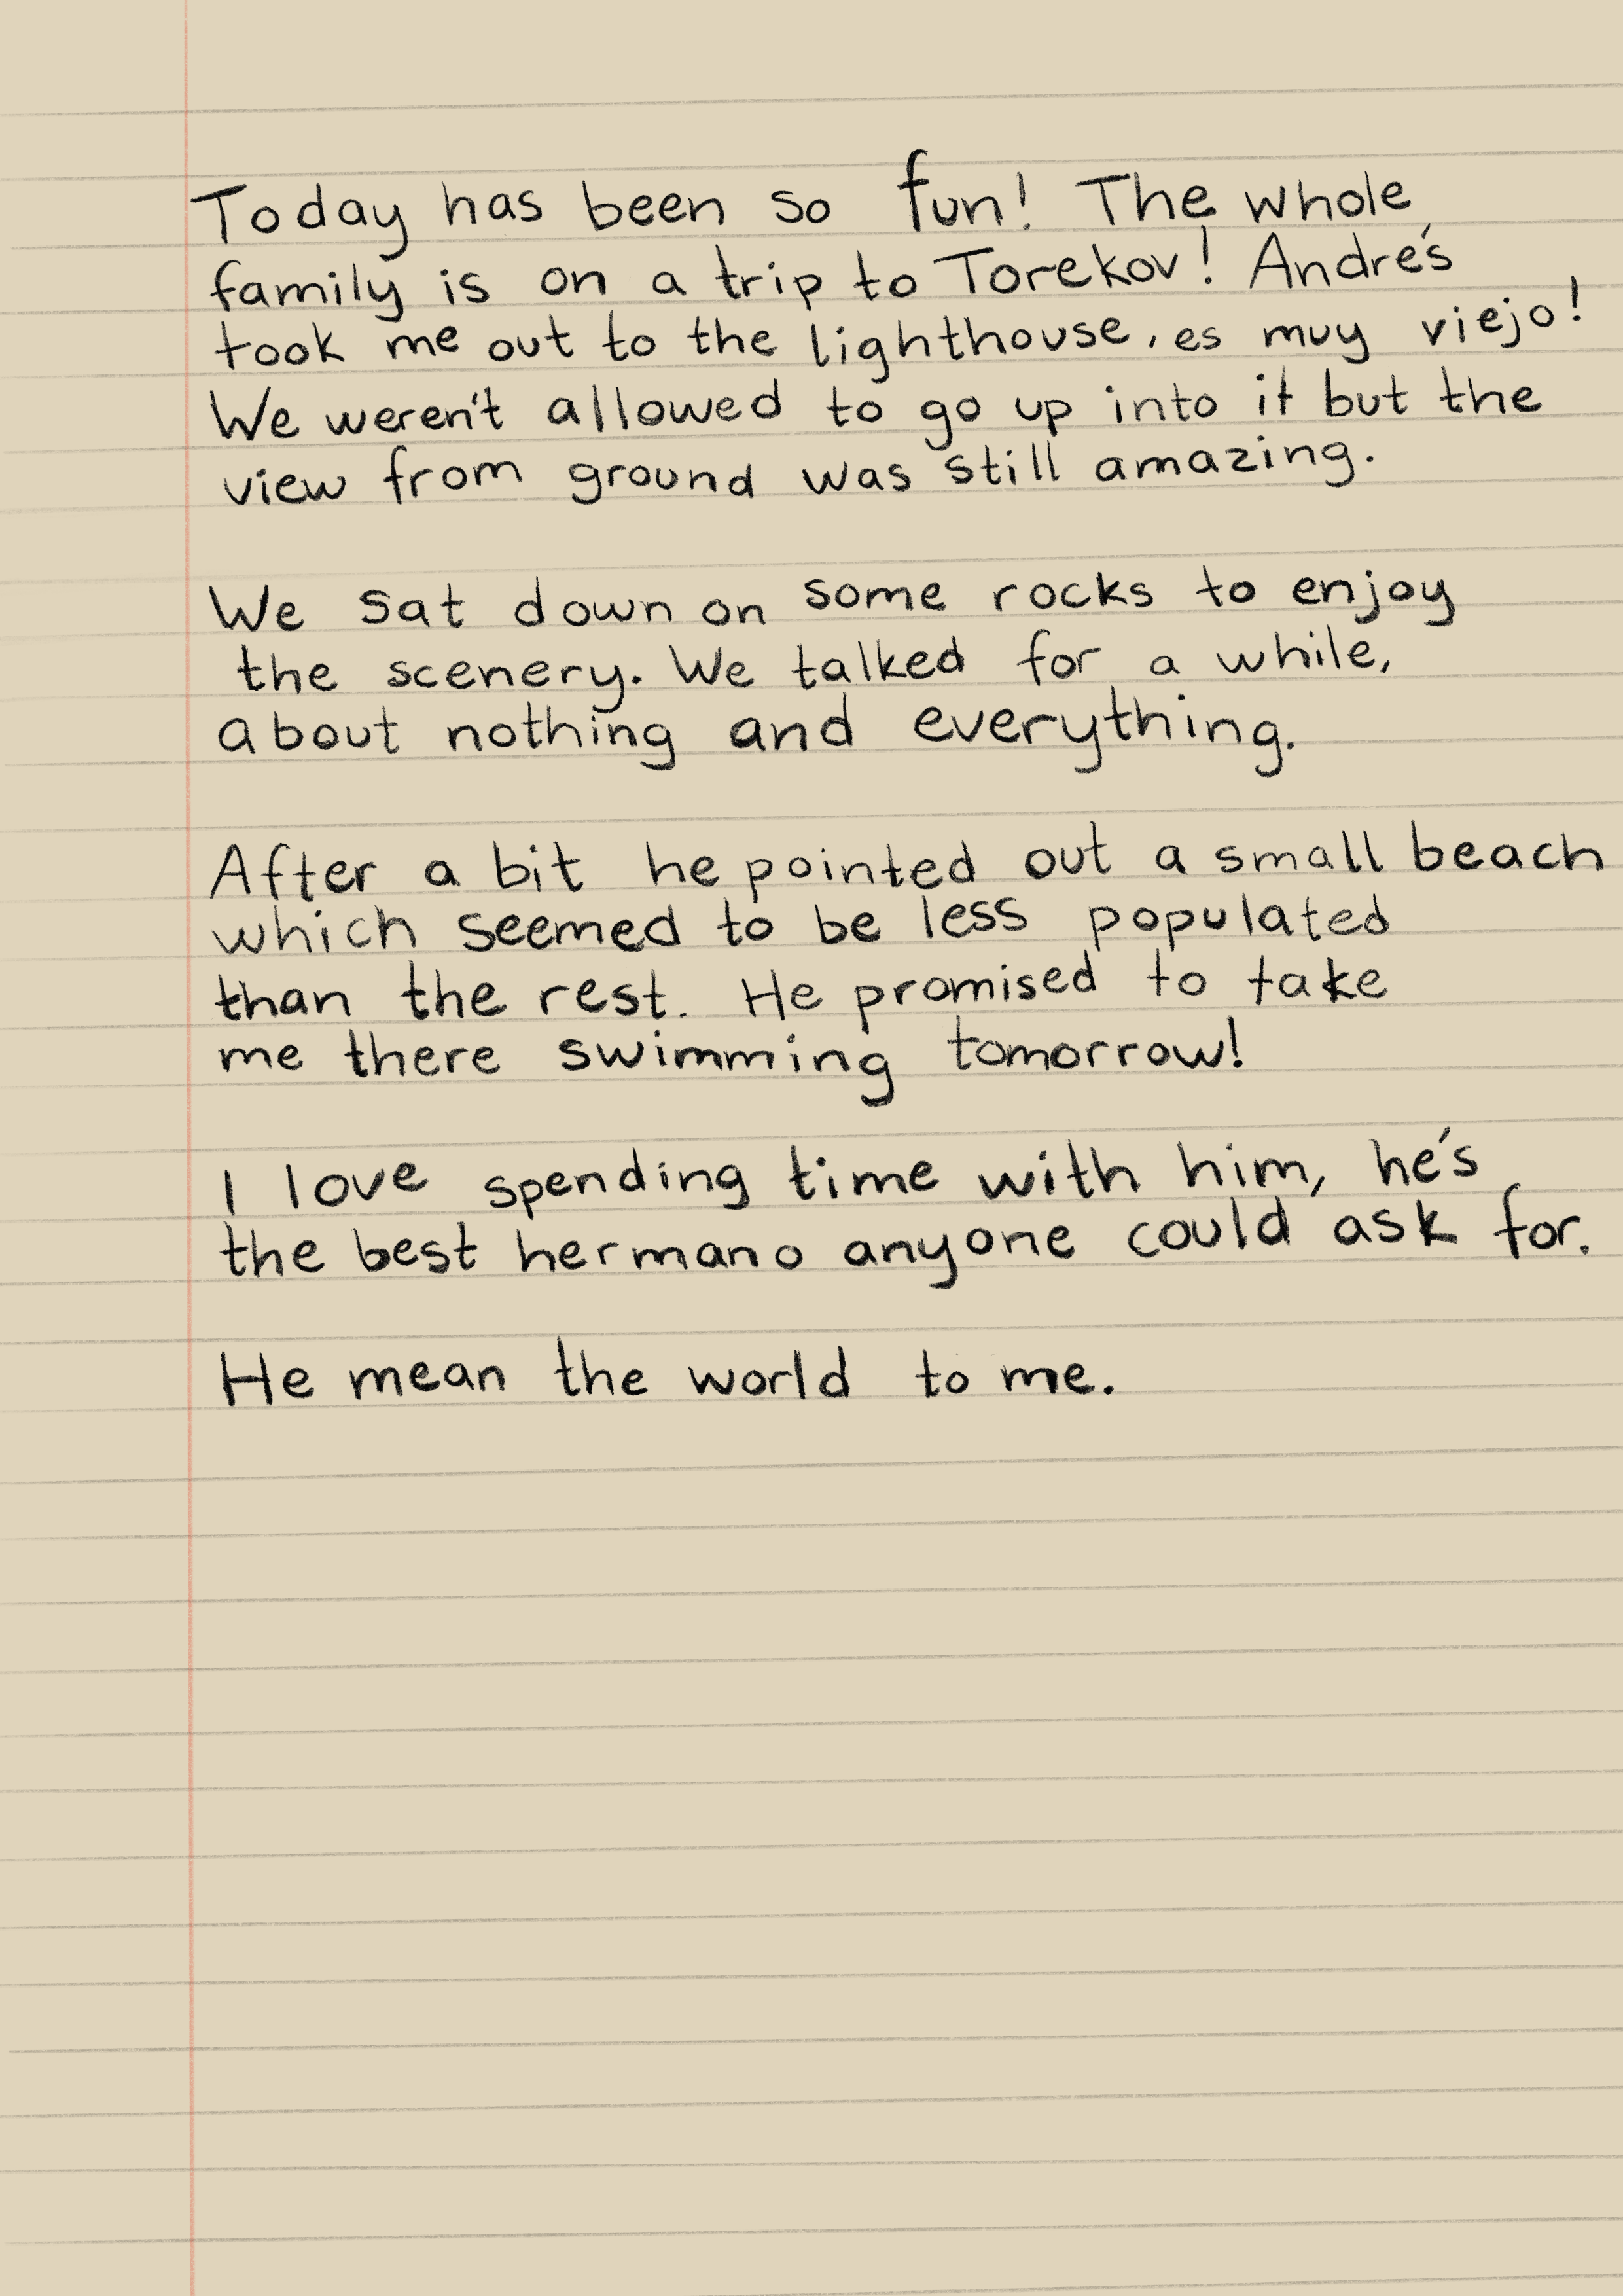 Today has been so fun! The whole
family is on a trip to Torekov! Andrés
took me out to the lighthouse, es muy viejo!
We weren't allowed to go up into it but the
view from ground was still amazing.
We sat down on some rocks to enjoy
the scenery. We talked for a while,
about nothing and everything.
After a bit he pointed out a small beach
which seemed to be less populated
than the rest. He promised to take
me there swimming tomorrow!
I love spending time with him, he's
the best hermano anyone could ask for.
He mean the world to me.